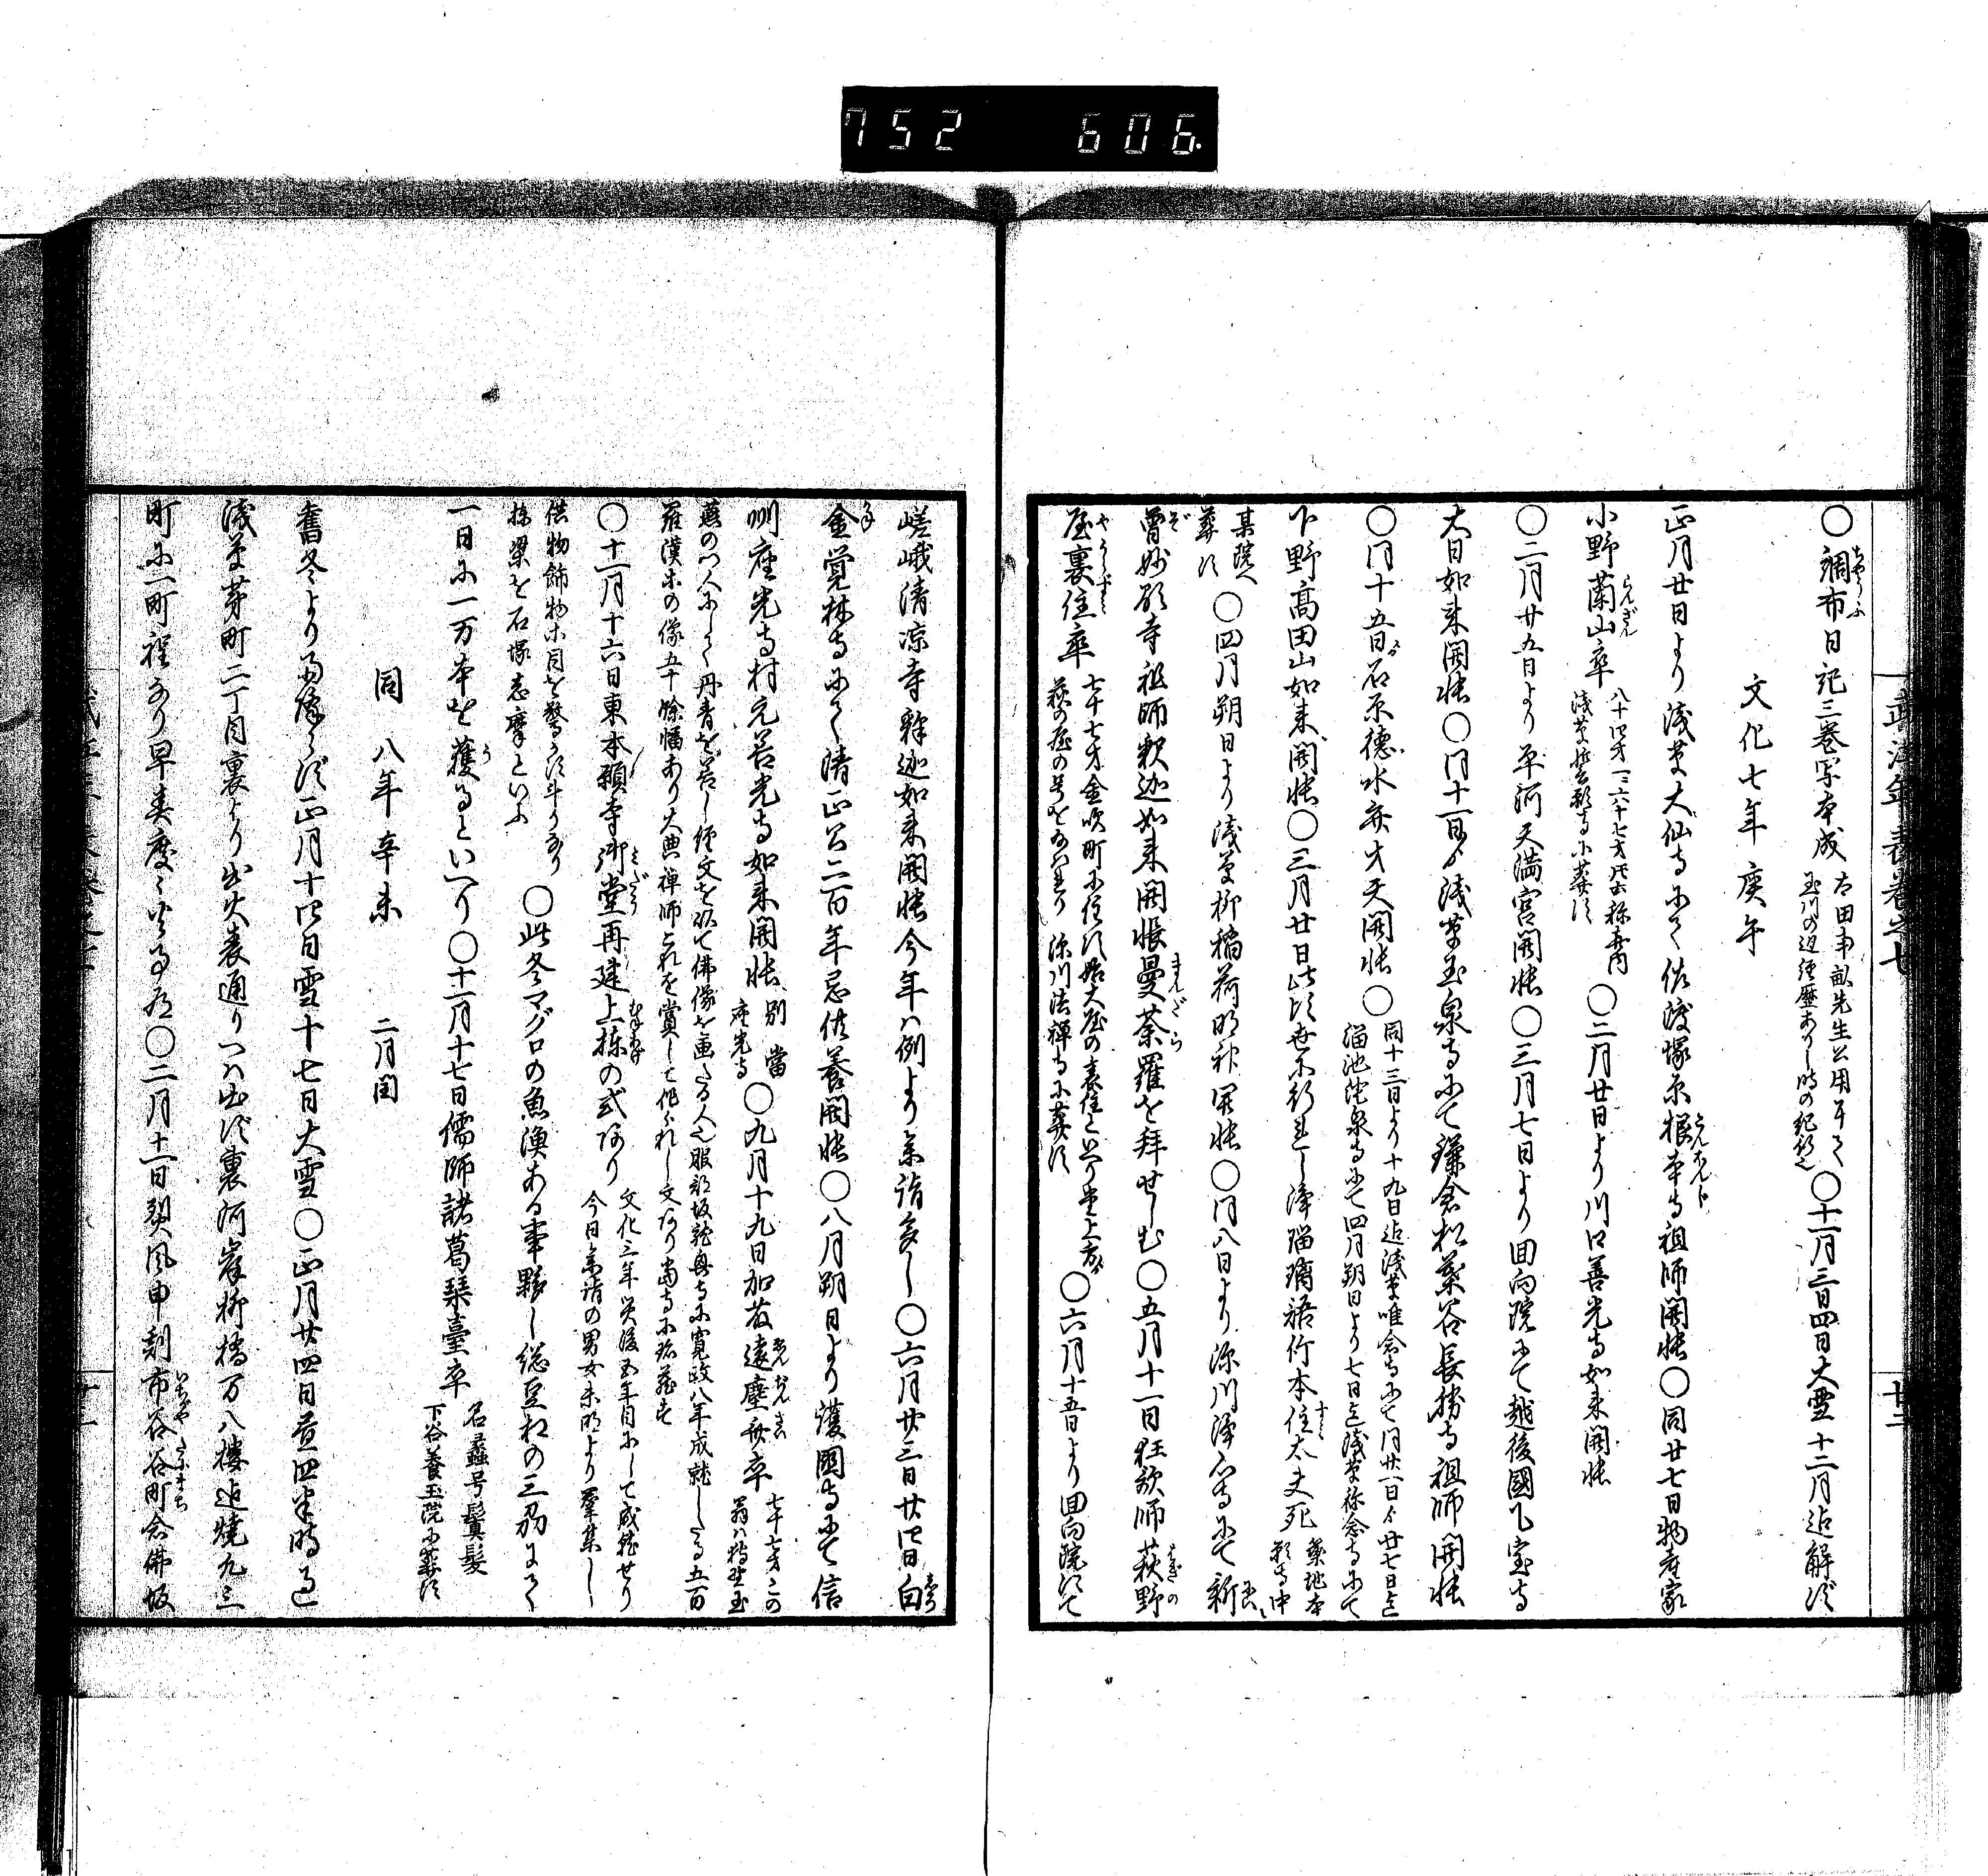 752 606
○調布日記三巻写本成 太田南畝先生公用ニて玉川の辺経歴ありし時の紀行也 ○十一月三日四日大雪十二月迄解ず
文化七年庚午
正月廿日より浅草大仙寺にて佐渡塚原根本寺祖師開帳○同廿七日物産家
小野蘭山卒 八十四才 浅草誓願寺に葬す ○二月廿日より川口善光寺如来開帳
○二月廿五日より平河天満宮開帳○三月七日より回向院にて越後國乙宝寺
大日如来開帳○同十一日より浅草玉泉寺にて鎌倉松葉谷長勝寺祖師開帳
○同十五日より石原徳水弁才天開帳○同十三日より十九日迄浅草唯念寺にて同廿一日より廿七日迄溜池澄泉寺にて四月朔日より七日迄浅草称念寺にて
下野高田山如来開帳○三月廿日此頃世に行れし浄瑠璃語竹本住太夫死 築地本願寺中
某院へ葬す ○四月朔日より浅草柳稲荷明神開帳○同八日より深川浄心寺にて新
曽妙顕寺祖師釈迦如来開帳曼荼羅を拝せしむ○五月十一日狂歌師萩野
屋裏住卒 七十七才金吹町に住す始大屋の裏住と云り 萩の屋の号を 深川法禅寺に葬す ○六月十五日より回向院にて
嵯峨清凉寺釈迦如来開帳今年ハ例より参詣多し○六月廿三日廿四日白
金覚林寺にて清正公二百年忌供養開帳○八月朔日より護國寺にて信
州座光寺村元善光寺如来開帳 別當座光寺 ○九月十九日加茂遠塵斎卒 七十七才この翁ハ狩野玉
燕の門人にして丹青を善し経文を以て佛像を画たる人也服部坂龍興寺に寛政八年成就したる五百羅漢等の像五十餘幅あり大典禅師これを賞して作られし文あり当寺に珍蔵す
○十一月十六日東本願寺御堂再建上棟の式あり 文化三年災後五年目にして成就せり今日参詣の男女未明より群集し
供物飾物等目を驚かす斗りなり棟梁を石塚志摩といふ ○此冬マグロの魚漁ある事夥し総豆相の三州にて
一日に一万本を獲るといへり○十一月十七日儒師諸葛琴臺卒 名蠡号鬒髪下谷養玉院に葬す
同 八年辛未 二月閏
舊冬より雨降らず正月十四日雪十七日大雪○正月廿四日昼四半時過
浅草茅町二丁目裏より出火表通りへハ出ず裏河岸柳橋万八樓迄焼九三
町に一町程なり早春度々火事あり○二月十一日烈風申刻市谷谷町念佛坂